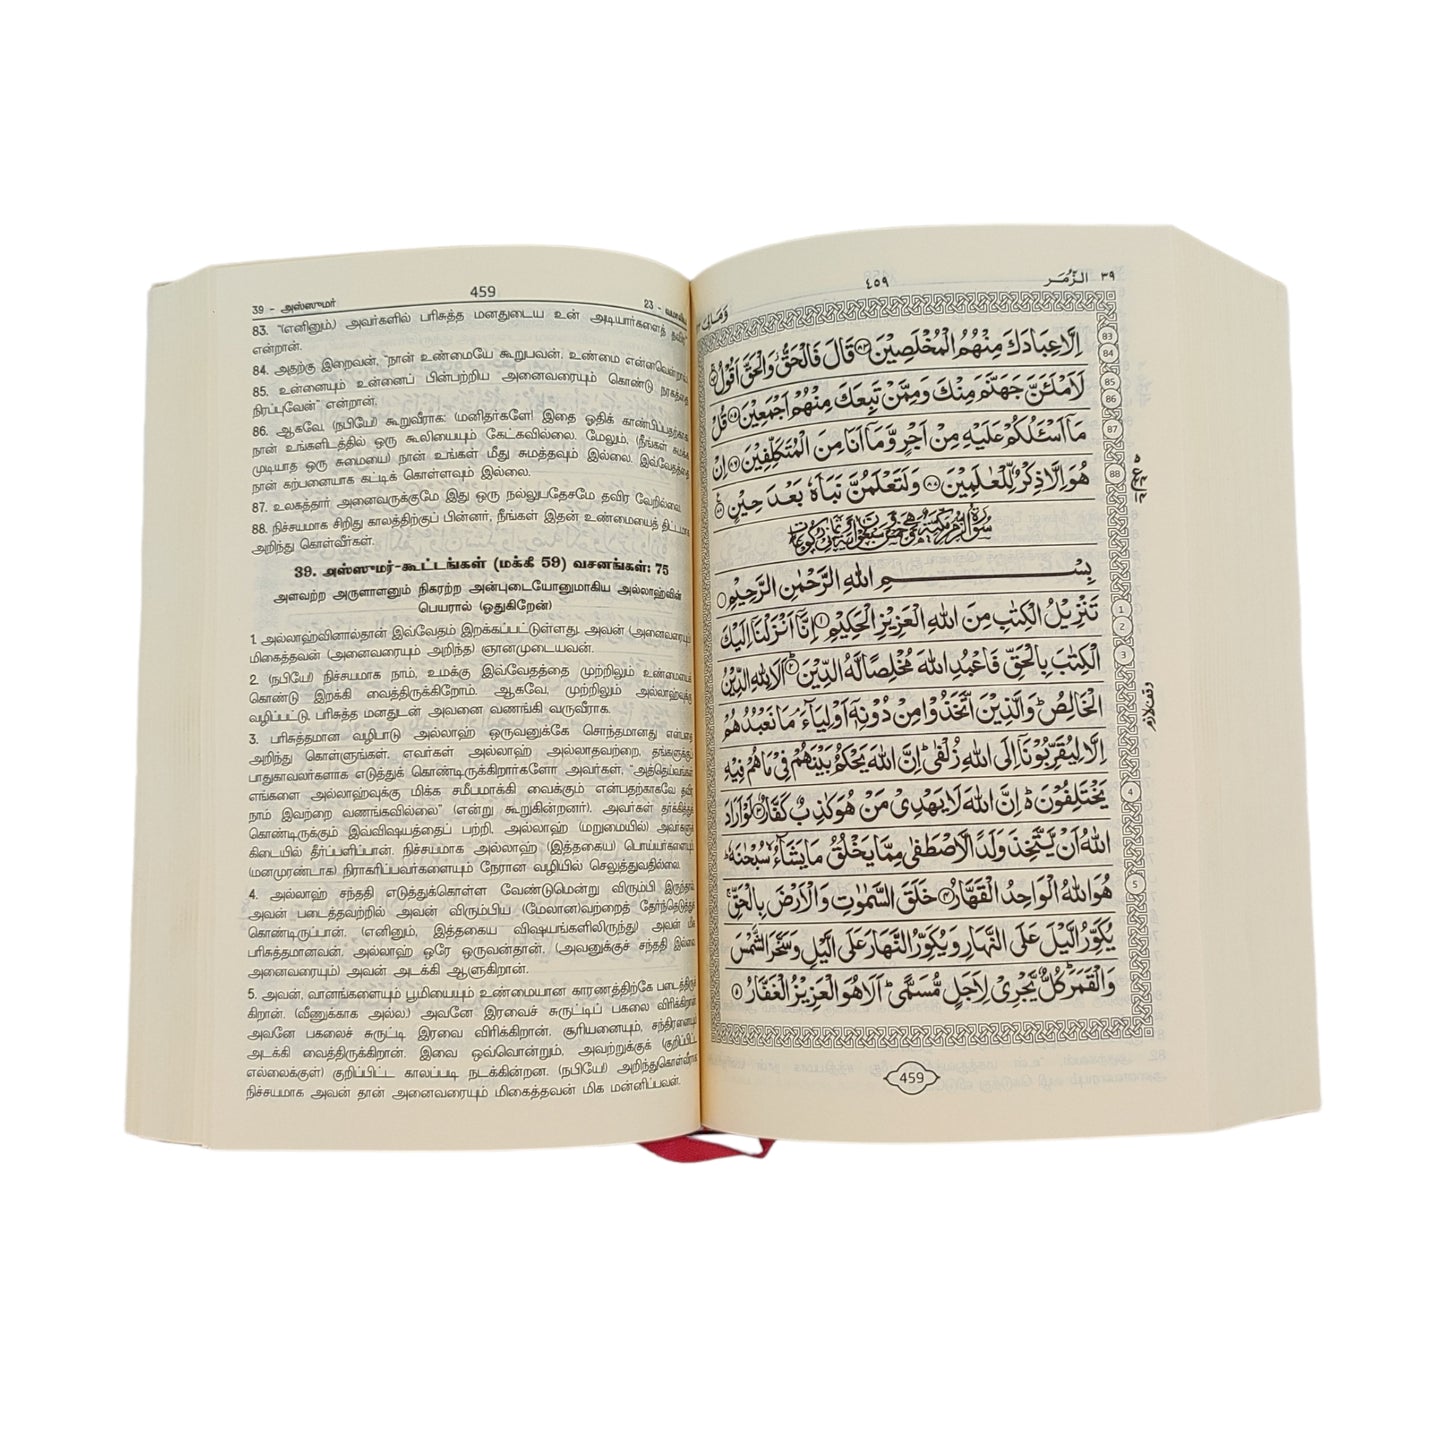 39 - அஸ்ஸுமர்
459
23 -
83. "(எனினும்) அவர்களில் பரிசுத்த மனதுடைய உன் அடியார்களைத் தவிர"
என்றான்.
84. அதற்கு இறைவன், "நான் உண்மையே கூறுபவன், உண்மை என்னவென்றால்,
85. உன்னையும் உன்னைப் பின்பற்றிய அனைவரையும் கொண்டு நரகத்தை
நிரப்புவேன்" என்றான்.
86. ஆகவே, (நபியே!) கூறுவீராக: (மனிதர்களே! இதை ஓதிக் காண்பிப்பதற்காக
நான் உங்களிடத்தில் ஒரு கூலியையும் கேட்கவில்லை. மேலும், (நீங்கள் சுமக்க
முடியாத ஒரு சுமையை) நான் உங்கள் மீது சுமத்தவும் இல்லை. இவ்வேதத்தை
நான் கற்பனையாக கட்டிக் கொள்ளவும் இல்லை.
87. உலகத்தார் அனைவருக்குமே இது ஒரு நல்லுபதேசமே தவிர வேறில்லை.
88. நிச்சயமாக சிறிது காலத்திற்குப் பின்னர், நீங்கள் இதன் உண்மையைத் திட்டமாக
அறிந்து கொள்வீர்கள்.
39. அஸ்ஸுமர்-கூட்டங்கள் (மக்கீ 59) வசனங்கள்: 75
அளவற்ற அருளாளனும் நிகரற்ற அன்புடையோனுமாகிய அல்லாஹ்வின்
பெயரால் (ஓதுகிறேன்)
1. அல்லாஹ்வினால்தான் இவ்வேதம் இறக்கப்பட்டுள்ளது. அவன் (அனைவரையும்)
மிகைத்தவன் (அனைவரையும் அறிந்த) ஞானமுடையவன்.
2. (நபியே!) நிச்சயமாக நாம், உமக்கு இவ்வேதத்தை முற்றிலும் உண்மையைக்
கொண்டு இறக்கி வைத்திருக்கிறோம். ஆகவே, முற்றிலும் அல்லாஹ்வுக்கு
வழிப்பட்டு, பரிசுத்த மனதுடன் அவனை வணங்கி வருவீராக.
3. பரிசுத்தமான வழிபாடு அல்லாஹ் ஒருவனுக்கே சொந்தமானது என்பதை
அறிந்து கொள்ளுங்கள். எவர்கள் அல்லாஹ் அல்லாதவற்றை, தங்களுக்குப்
பாதுகாவலர்களாக எடுத்துக் கொண்டிருக்கிறார்களோ அவர்கள், "அத்தெய்வங்கள்
எங்களை அல்லாஹ்வுக்கு மிக்க சமீபமாக்கி வைக்கும் என்பதற்காகவே தவிர
நாம் இவற்றை வணங்கவில்லை" (என்று கூறுகின்றனர்). அவர்கள் தர்க்கித்துக்
கொண்டிருக்கும் இவ்விஷயத்தைப் பற்றி, அல்லாஹ் (மறுமையில்) அவர்களுக்
கிடையில் தீர்ப்பளிப்பான். நிச்சயமாக அல்லாஹ் (இத்தகைய) பொய்யர்களையும்
(மனமுரண்டாக) நிராகரிப்பவர்களையும் நேரான வழியில் செலுத்துவதில்லை.
4. அல்லாஹ் சந்ததி எடுத்துக்கொள்ள வேண்டுமென்று விரும்பி இருந்தால்,
அவன் படைத்தவற்றில் அவன் விரும்பிய (மேலான)வற்றைத் தேர்ந்தெடுத்துக்
கொண்டிருப்பான். (எனினும், இத்தகைய விஷயங்களிலிருந்து) அவன் மிக
பரிசுத்தமானவன். அல்லாஹ் ஒரே ஒருவன்தான். (அவனுக்குச் சந்ததி இல்லை
அனைவரையும்) அவன் அடக்கி ஆளுகிறான்.
5. அவன், வானங்களையும் பூமியையும் உண்மையான காரணத்திற்கே படைத்திருக்
கிறான். (வீணுக்காக அல்ல.) அவனே இரவைச் சுருட்டிப் பகலை விரிக்கிறான்.
அவனே பகலைச் சுருட்டி இரவை விரிக்கிறான். சூரியனையும், சந்திரனையும்
அடக்கி வைத்திருக்கிறான். இவை ஒவ்வொன்றும், அவற்றுக்குக் (குறிப்பிட்ட
எல்லைக்குள்) குறிப்பிட்ட காலப்படி நடக்கின்றன. (நபியே!) அறிந்துகொள்வீராக
நிச்சயமாக அவன் தான் அனைவரையும் மிகைத்தவன் மிக மன்னிப்பவன்.
الزُّمَر ٣٩
٤٥٩
وَمَالِیَ
اِلَّا عِبَادَكَ مِنْهُمُ الْمُخْلَصِيْنَ ﴿۸۳﴾ قَالَ فَالْحَقُّ وَالْحَقَّ اَقُوْلُ ﴿۸۴﴾
لَاَمْلَـَٔنَّ جَهَنَّمَ مِنْكَ وَمِمَّنْ تَبِعَكَ مِنْهُمْ اَجْمَعِيْنَ ﴿۸۵﴾ قُلْ
مَاۤ اَسْـَٔلُكُمْ عَلَيْهِ مِنْ اَجْرٍ وَّمَاۤ اَنَا مِنَ الْمُتَكَلِّفِيْنَ ﴿۸۶﴾ اِنْ
هُوَ اِلَّا ذِكْرٌ لِّلْعٰلَمِيْنَ ﴿۸۷﴾ وَلَتَعْلَمُنَّ نَبَاَهٗ بَعْدَ حِيْنٍ ﴿۸۸﴾
بِسْــــــمِ اللهِ الرَّحْمٰنِ الرَّحِيْمِ
تَنْزِيْلُ الْكِتٰبِ مِنَ اللهِ الْعَزِيْزِ الْحَكِيْمِ ﴿۱﴾ اِنَّاۤ اَنْزَلْنَاۤ اِلَيْكَ
الْكِتٰبَ بِالْحَقِّ فَاعْبُدِ اللهَ مُخْلِصًا لَّهُ الدِّيْنَ ﴿۲﴾ اَلَا لِلّٰهِ الدِّيْنُ
الْخَالِصُ ؕ وَالَّذِيْنَ اتَّخَذُوْا مِنْ دُوْنِهٖۤ اَوْلِيَآءَ ۘ مَا نَعْبُدُهُمْ
اِلَّا لِيُقَرِّبُوْنَاۤ اِلَى اللهِ زُلْفٰى ؕ اِنَّ اللهَ يَحْكُمُ بَيْنَهُمْ فِىْ مَا هُمْ فِيْهِ
يَخْتَلِفُوْنَ ؕ اِنَّ اللهَ لَا يَهْدِىْ مَنْ هُوَ كٰذِبٌ كَفَّارٌ ﴿۳﴾ لَوْ اَرَادَ
اللهُ اَنْ يَّتَّخِذَ وَلَدًا لَّاصْطَفٰى مِمَّا يَخْلُقُ مَا يَشَآءُ ۙ سُبْحٰنَهٗ ؕ
هُوَ اللهُ الْوَاحِدُ الْقَهَّارُ ﴿۴﴾ خَلَقَ السَّمٰوٰتِ وَالْاَرْضَ بِالْحَقِّ ۚ
يُكَوِّرُ الَّيْلَ عَلَى النَّهَارِ وَيُكَوِّرُ النَّهَارَ عَلَى الَّيْلِ وَسَخَّرَ الشَّمْسَ
وَالْقَمَرَ ؕ كُلٌّ يَّجْرِىْ لِاَجَلٍ مُّسَمًّى ؕ اَلَا هُوَ الْعَزِيْزُ الْغَفَّارُ ﴿۵﴾
83
84
85
86
87
88
1
2
3
4
5
وقف لازم
459